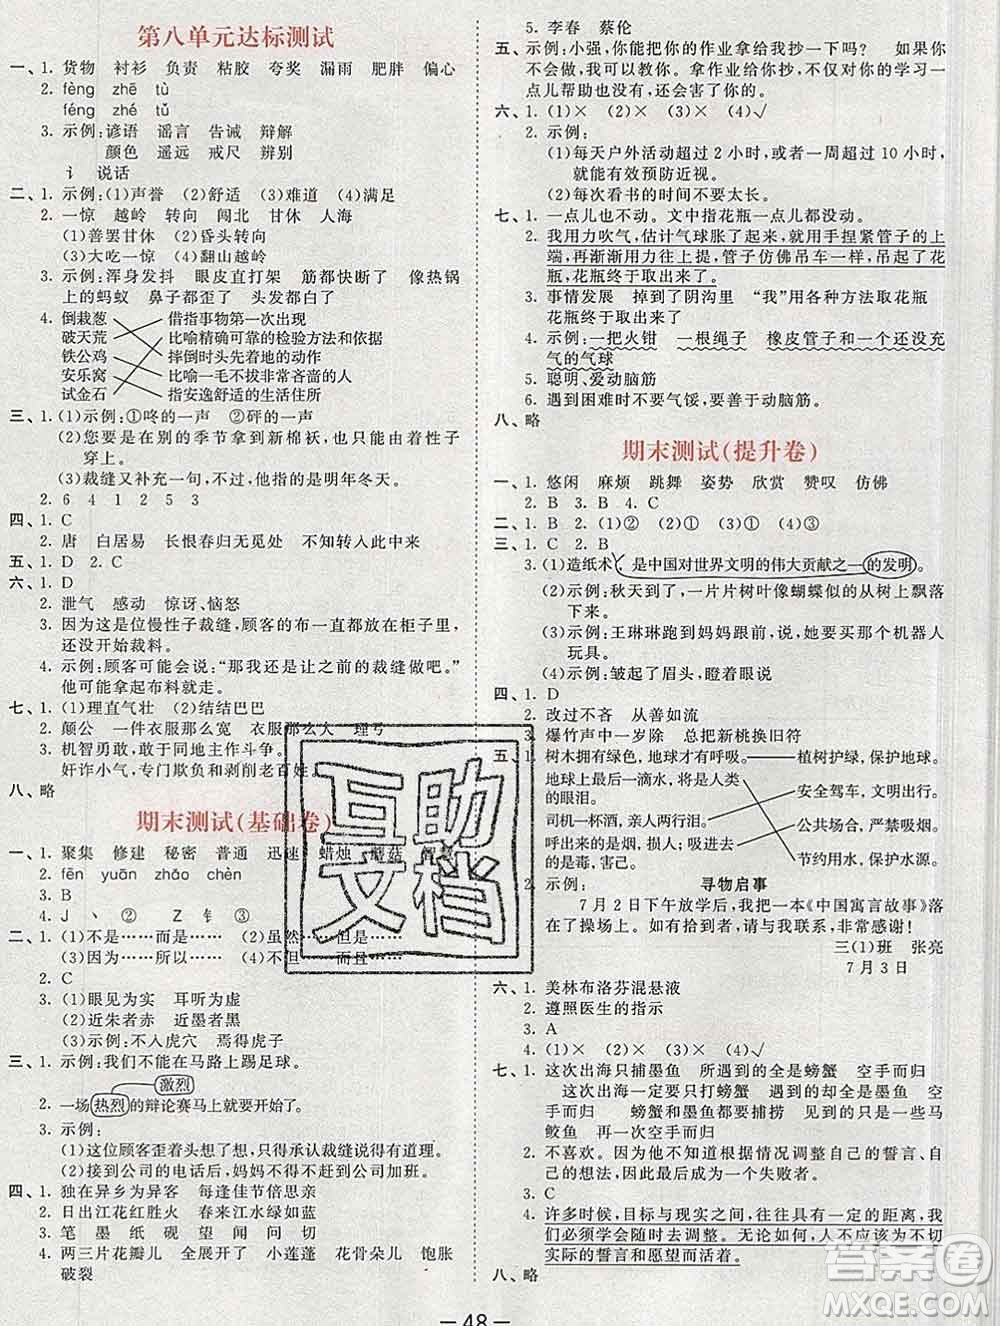 第八单元达标测试
一、1. 货物 衬衫 负责 粘胶 夸奖 漏雨 肥胖 偏心
2. fèng zhē tù
féng zhé tǔ
3. 示例:谚语 谣言 告诫 辩解
颜色 遥远 戒尺 辨别
讠 说话
二、1. 示例:(1)声誉 (2)舒适 (3)难道 (4)满足
2. 一惊 越岭 转向 闯北 甘休 人海
(1)善罢甘休 (2)昏头转向
(3)大吃一惊 (4)翻山越岭
3. 示例:浑身发抖 眼皮直打架 筋都快断了 像热锅
上的蚂蚁 鼻子都歪了 头发都白了
4. 倒栽葱 借指事物第一次出现
破天荒 比喻精确可靠的检验方法和依据
铁公鸡 摔倒时头先着地的动作
安乐窝 比喻一毛不拔非常吝啬的人
试金石 指安逸舒适的生活住所
三、1. (1)示例:①咚的一声 ②砰的一声
(2)您要是在别的季节拿到新棉袄,如果由着性子
穿上。
(3)裁缝又补充一句,不过,他指的是明年冬天。
2. 6 4 1 2 5 3
四、1. C
2. 唐 白居易 长恨春归无觅处 不知转入此中来
五、1. D 2. C
六、1. D
2. 泄气 感动 惊讶、恼怒
3. 因为这位慢性子裁缝,顾客的布一直都放在柜子里,
还没开始裁料。
4. 示例:顾客可能会说:“那我还是让之前的裁缝做吧。”
他可能拿起布料就走。
七、1. (1)理直气壮 (2)结结巴巴
2. 颠公 一件衣服那么宽 衣服那么大 理亏
3. 机智勇敢,敢于同地主作斗争。
奸诈小气,专门欺负和剥削老百姓。
八、略
期末测试(基础卷)
一、1. 聚集 修建 秘密 普通 迅速 蜡烛 蘑菇
2. fēn yuān zhāo chèn
3. B
4. J 丶 ② Z 钅 ③
二、1. (1)不是……而是…… (2)虽然……但是……
(3)因为……所以…… (4)不但 而且
2. C
3. (1)眼见为实 耳听为虚
(2)近朱者赤 近墨者黑
(3)示例:不入虎穴 焉得虎子
三、1. 示例:我们不能在马路上踢足球。
激烈
2. 一场热烈的辩论赛马上就要开始了。
3. 示例:
(1)这位顾客歪着头想了想,只得承认裁缝说得有道理。
(2)接到公司的电话后,妈妈不得不赶到公司加班。
四、1. 独在异乡为异客 每逢佳节倍思亲
2. 日出江花红胜火 春来江水绿如蓝
3. 笔 墨 纸 砚 望 闻 问 切
4. 两三片花瓣儿 全展开了 小莲蓬 花骨朵儿 饱胀
破裂
5. 李春 蔡伦
五、示例:小强,你能把你的作业拿给我抄一下吗? 如果你
不会做,我可以教你。拿作业给你抄,不仅对你的学习一
点儿帮助也没有,还会害了你的。
六、1. (1)× (2)× (3)× (4)√
2. 示例:
(1)每天户外活动超过 2 小时,或者一周超过 10 小时,
就能有效预防近视。
(2)每次看书的时间不要太长。
七、1. 一点儿也不动。文中指花瓶一点儿都没动。
2. 我用力吹气,估计气球胀了起来,就用手捏紧管子的上
端,再渐渐用力往上提,管子仿佛吊车一样,吊起了花
瓶,花瓶终于取出来了。
3. 事情发展 掉到了阴沟里 “我”用各种方法取花瓶
花瓶终于取出来了
4. 示例:一把火钳 一根绳子 橡皮管子和一个还没充
气的气球
5. 聪明、爱动脑筋
6. 遇到困难时不要气馁,要善于动脑筋。
八、略
期末测试(提升卷)
一、1. 悠闲 麻烦 跳舞 姿势 欣赏 赞叹 仿佛
2. B 3. B 4. C
二、1. B 2. (1)② (2)① (3)① (4)③
三、1. C 2. B
3. (1)造纸术,是中国对世界文明的伟大贡献之一的发明。
(2)示例:秋天到了,一片片树叶像蝴蝶似的从树上飘落
下来。
(3)示例:王琳琳跑到妈妈跟前,说,她要买那个机器人
玩具。
(4)示例:皱起了眉头,瞪着眼说
四、1. D
2. 改过不吝 从善如流
3. 爆竹声中一岁除 总把新桃换旧符
五、1. 树木拥有绿色,地球才有呼吸。 植树护绿,保护地球。
地球上最后一滴水,将是人类
的眼泪。 安全驾车,文明出行。
司机一杯酒,亲人两行泪。 公共场合,严禁吸烟。
呼出来的是烟,损人;吸进去
的是毒,害己。 节约用水,保护水源。
2. 示例: 寻物启事
7 月 2 日下午放学后,我把一本《中国寓言故事》落
在了操场。如有拾到者,请与我联系,非常感谢!
三(1)班 张亮
7 月 3 日
六、1. 美林布洛芬混悬液
2. 遵照医生的指示
3. A
4. (1)× (2)× (3)× (4)√
七、1. 这次出海只捕墨鱼 遇到的全是螃蟹 空手而归
这次出海一定要只打螃蟹 遇到的却全是墨鱼
空手而归 螃蟹和墨鱼都要捕捞 见到的是一些马
鲛鱼 再一次空手而归
2. 不喜欢。因为他不知道根据情况调整自己的誓言、自
己的想法,一次次地错过,最终成为一个失败者。
3. C
4. 许多时候,目标与现实之间,往往具有一定的距离,我
们必须学会随时去调整。无论如何,人不应该为不切
实际的誓言和愿望而活着。
八、略
— 48 —
互助
文档
答案圈
MXQE.COM